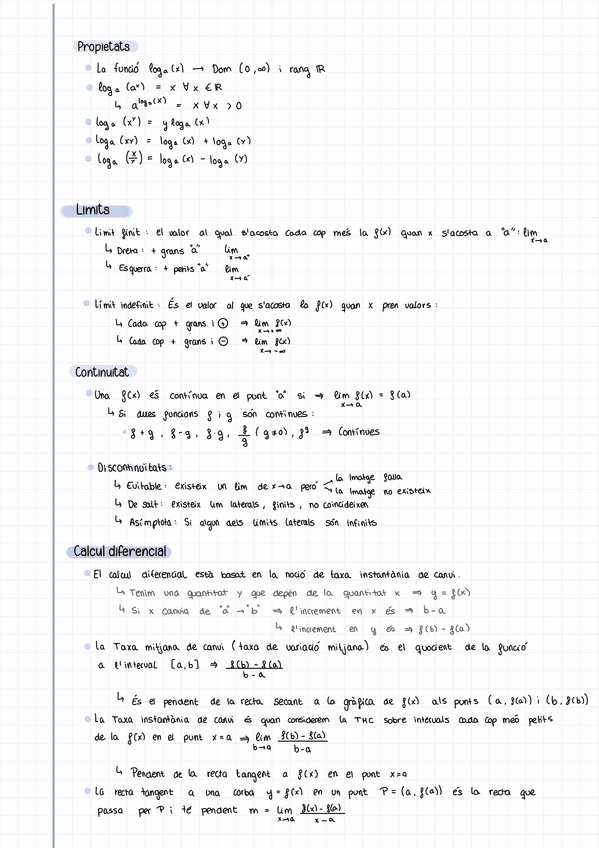 Propietats
La funció logₐ(x) → Dom (0,∞) i rang ℝ
logₐ(aˣ) = x ∀x ∈ ℝ
↳ a^(logₐ(x)) = x ∀x > 0
logₐ(x^y) = y logₐ(x)
logₐ(xy) = logₐ(x) + logₐ(y)
logₐ(x/y) = logₐ(x) - logₐ(y)
Límits
Límit finit : el valor al qual s'acosta cada cop més la f(x) quan x s'acosta a "a" : lim x→a
↳ Dreta : + grans "a" lim x→a⁺
↳ Esquerra : + petits "a" lim x→a⁻
Límit indefinit : És el valor al que s'acosta la f(x) quan x pren valors :
↳ Cada cop + grans i ⊕ ⇒ lim x→+∞ f(x)
↳ Cada cop + grans i ⊖ ⇒ lim x→-∞ f(x)
Continuïtat
Una f(x) és contínua en el punt "a" si ⇒ lim x→a f(x) = f(a)
↳ Si dues funcions f i g són contínues :
f+g , f-g , f·g , f/g (g≠0) , f^g ⇒ Contínues
Discontinuïtats :
↳ Evitable : existeix un lim de x→a però la imatge falla
la imatge no existeix
↳ De salt : existeix lim laterals , finits , no coincideixen
↳ Asímptota : Si algun dels límits laterals són infinits
Calcul diferencial
El calcul diferencial està basat en la noció de taxa instantània de canvi.
↳ Tenim una quantitat y que depèn de la quantitat x ⇒ y = f(x)
↳ Si x canvia de "a" → "b" ⇒ l'increment en x és ⇒ b-a
↳ l'increment en y és ⇒ f(b) - f(a)
La Taxa mitjana de canvi (taxa de variació mitjana) és el quocient de la funció
a l'interval [a,b] ⇒ (f(b) - f(a))/(b-a)
↳ És el pendent de la recta secant a la gràfica de f(x) als punts (a, f(a)) i (b, f(b))
La Taxa instantània de canvi és quan considerem la TMC sobre intervals cada cop més petits
de la f(x) en el punt x=a ⇒ lim b→a (f(b) - f(a))/(b-a)
↳ Pendent de la recta tangent a f(x) en el punt x=a
La recta tangent a una corba y = f(x) en un punt P = (a, f(a)) és la recta que
passa per P i té pendent m = lim x→a (f(x) - f(a))/(x-a)